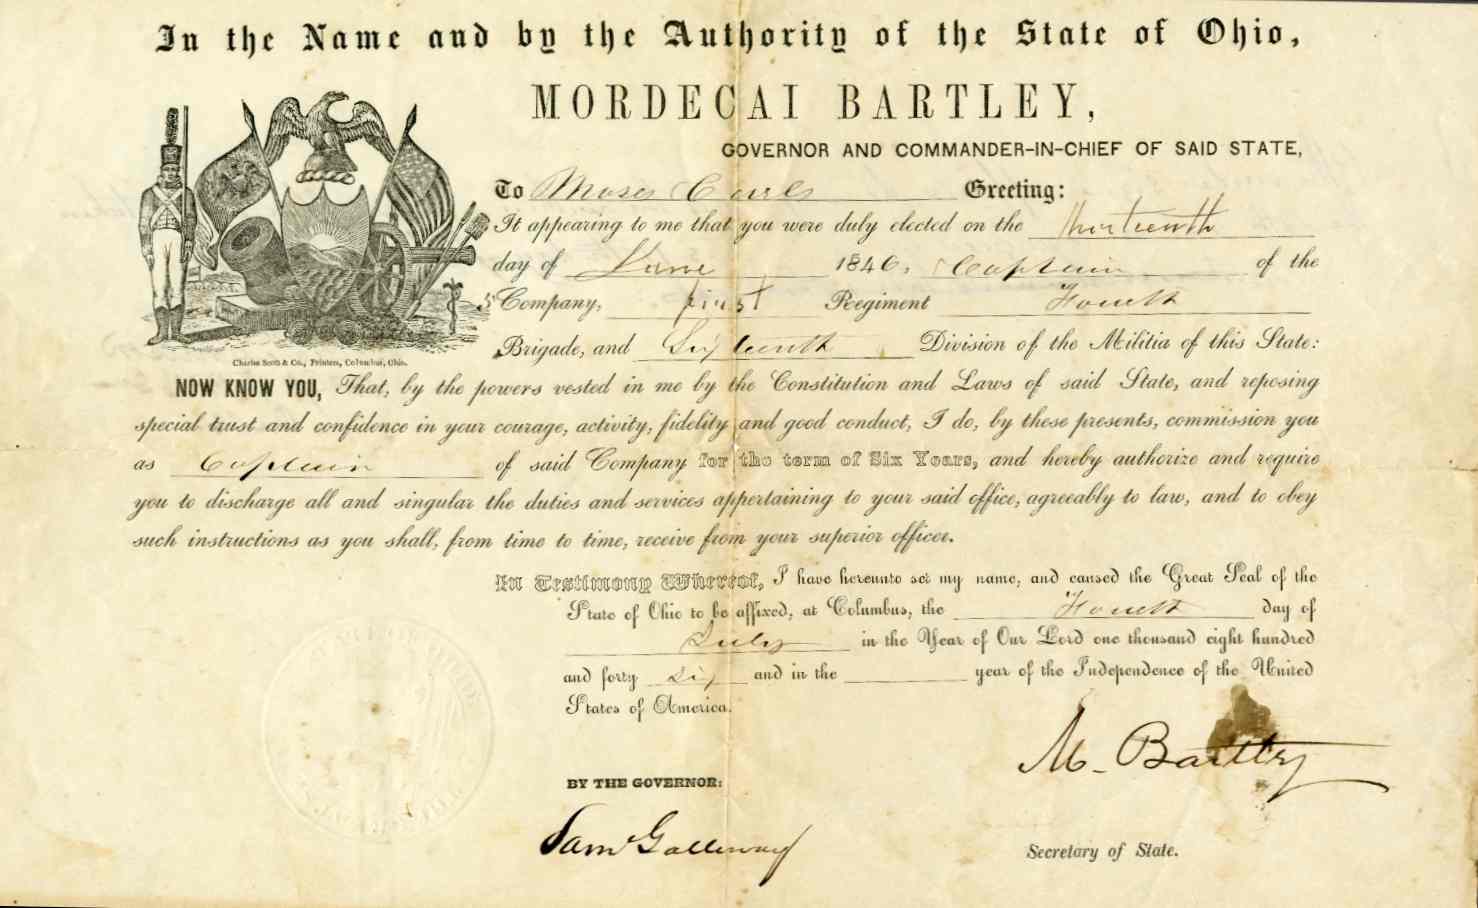 In the Name and by the Authority of the State of Ohio,
MORDECAI BARTLEY,
GOVERNOR AND COMMANDER-IN-CHIEF OF SAID STATE,
To Moses Carls Greeting:
It appearing to me that you were duly elected on the thirteenth
day of June 1846, Captain of the
Company, first Regiment Fourth
Brigade, and Sixteenth Division of the Militia of this State:
Charles Scott & Co., Printers, Columbus, Ohio.
NOW KNOW YOU, That, by the powers vested in me by the Constitution and Laws of said State, and reposing
special trust and confidence in your courage, activity, fidelity and good conduct, I do, by these presents, commission you
as Captain of said Company for the term of Six Years, and hereby authorize and require
you to discharge all and singular the duties and services appertaining to your said office, agreeably to law, and to obey
such instructions as you shall, from time to time, receive from your superior officer.
In Testimony Whereof, I have hereunto set my name, and caused the Great Seal of the
State of Ohio to be affixed, at Columbus, the Fourth day of
July in the Year of Our Lord one thousand eight hundred
and forty six and in the year of the Independence of the United
States of America.
M. Bartley
BY THE GOVERNOR:
Saml Galloway
Secretary of State.